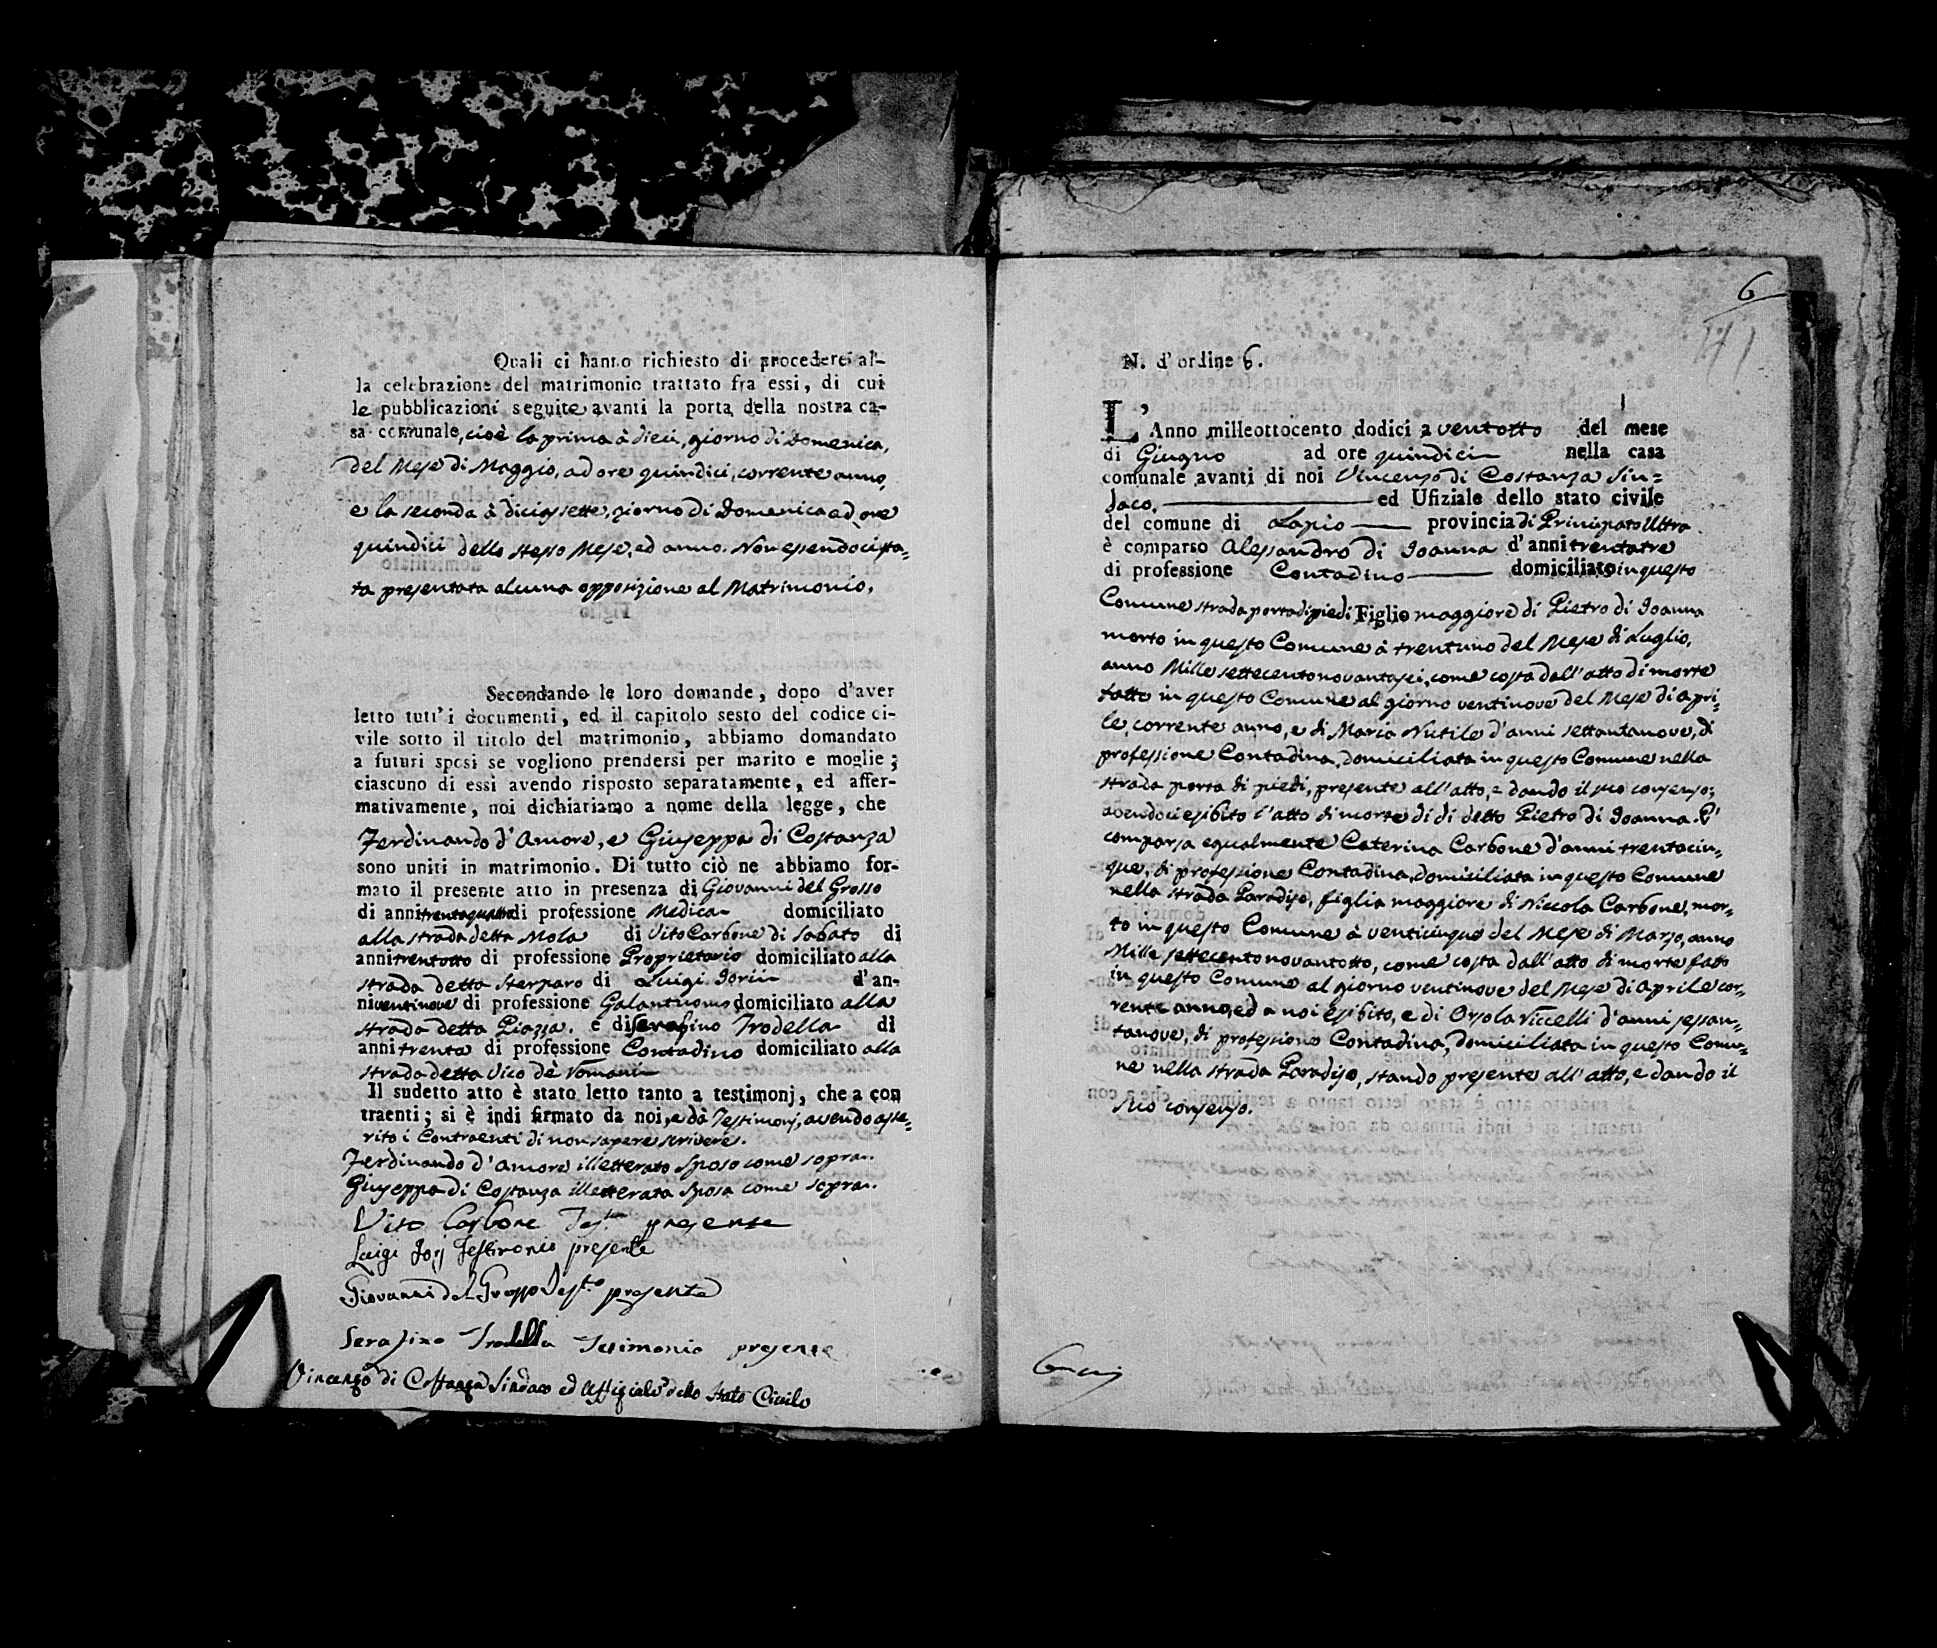 Quali ci hanno richiesto di procedere al-
la celebrazione del matrimonio trattato fra essi, di cui
le pubblicazioni seguite avanti la porta della nostra ca-
sa comunale, cioè la prima à dieci, giorno di Domenica,
del Mese di Maggio, ad ore quindici, corrente anno,
e la seconda à diciassette, giorno di Domenica ad ore
quindici dello stesso Mese, ed anno. Non essendoci sta-
ta presentata alcuna opposizione al Matrimonio.
Secondando le loro domande, dopo d'aver
letto tutt'i documenti, ed il capitolo sesto del codice ci-
vile sotto il titolo del matrimonio, abbiamo domandato
a futuri sposi se vogliono prendersi per marito e moglie;
ciascuno di essi avendo risposto separatamente, ed affer-
mativamente, noi dichiariamo a nome della legge, che
Ferdinando d'Amore, e Giuseppa di Costanza
sono uniti in matrimonio. Di tutto ciò ne abbiamo for-
mato il presente atto in presenza di Giovanni del Grosso
di anni trentaquattro di professione Medica domiciliato
alla strada detta Mola di Vito Carbone di Sabato di
anni trentotto di professione Proprietario domiciliato alla
strada detta Sterparo di Luigi Iorii d'an-
ni ventinove di professione Galantuomo domiciliato alla
strada detta Piazza. e di Serafino Trodella di
anni trenta di professione Contadino domiciliato alla
strada detta Vico de Romani
Il sudetto atto è stato letto tanto a testimonj, che a con
traenti; si è indi firmato da noi, e dà Testimonj, avendo asse-
rito i Contraenti di non sapere scrivere.
Ferdinando d'Amore illetterato Sposo come sopra.
Giuseppa di Costanza illetterata Sposa come sopra.
Vito Carbone Test. presente
Luigi Iorj Testimonio presente
Giovanni del Grosso Test.o presente
Serafino Trodella Testimonio presente
Vincenzo di Costanza Sindaco ed Uffiziale dello Stato Civile
6
N. d'ordine 6.
L'Anno milleottocento dodici a ventotto del mese
di Giugno ad ore quindici nella casa
comunale avanti di noi Vincenzo di Costanza Sin=
daco. ed Ufiziale dello stato civile
del comune di Lapio provincia di Principato Ultra
è comparso Alessandro di Ioanna d'anni trentatre
di professione Contadino domiciliato in questo
Comune strada porta di piedi Figlio maggiore di Pietro di Ioanna
morto in questo Comune à trentuno del Mese di Luglio,
anno Mille settecentonovantasei, come costa dall'atto di morte
fatto in questo Comune al giorno ventinove del Mese di Apri-
le, corrente anno, e di Maria Nutile d'anni settantanove, di
professione Contadina, domiciliata in questo Comune nella
strada porta di piedi, presente all'atto, e dando il suo consenso;
avendoci esibito l'atto di morte di di detto Pietro di Ioanna. E'
comparsa egualmente Caterina Carbone d'anni trentacin-
que, di professione Contadina, domiciliata in questo Comune
nella strada Paradiso, figlia maggiore di Niccola Carbone, mor-
to in questo Comune à venticinque del Mese di Marzo, anno
Mille settecentonovantotto, come costa dall'atto di morte fatto
in questo Comune al giorno ventinove del Mese di Aprile cor-
rente anno, ed a noi esibito, e di Orsola Viccelli d'anni sessan-
tanove, di professione Contadina, domiciliata in questo Comu-
ne nella strada Paradiso, stando presente all'atto, e dando il
suo consenso.